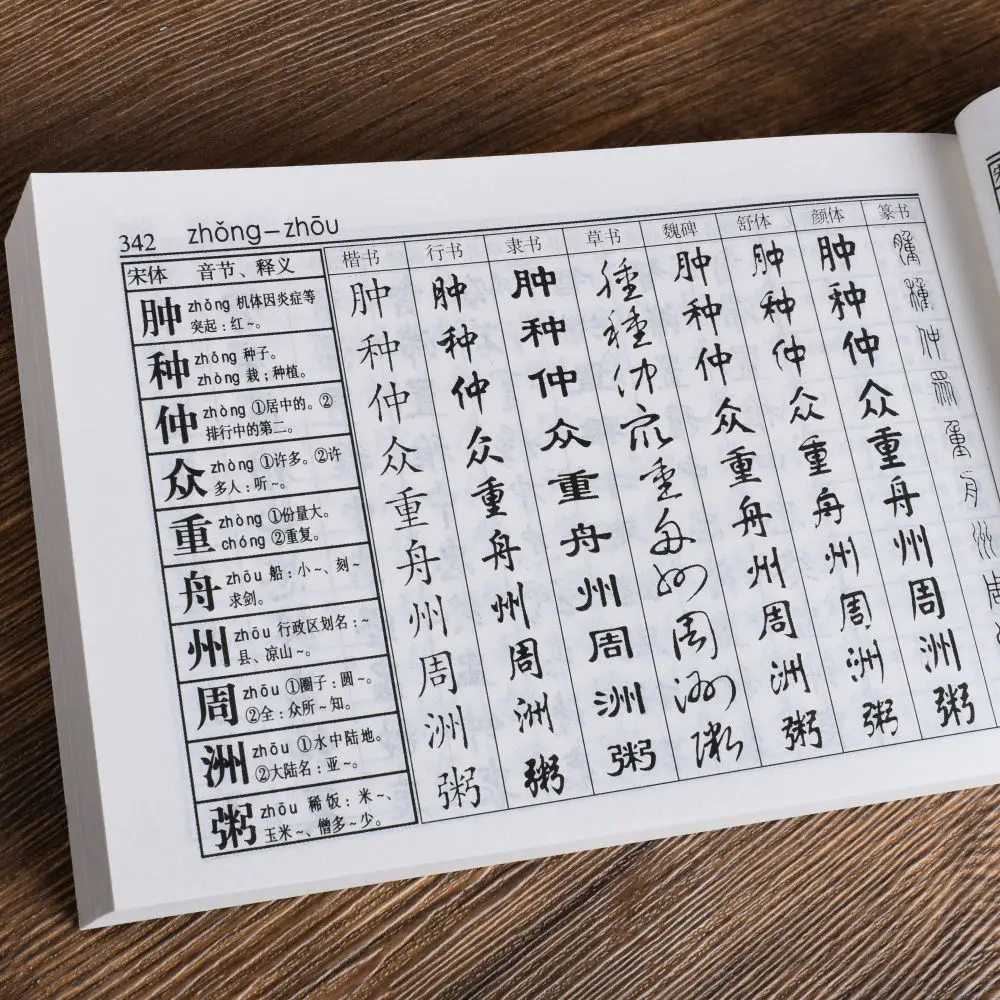 342 zhǒng－zhōu
宋体 音节、释义 楷书 行书 隶书 草书 魏碑 舒体 颜体 篆书
肿 zhǒng 机体因炎症等
突起：红～。
肿 肿 肿 肿 肿 肿 肿 肿
种 zhǒng 种子。
zhòng 栽；种植。
种 种 种 种 种 种 种 种
仲 zhòng ①居中的。②
排行中的第二。
仲 仲 仲 仲 仲 仲 仲 仲
众 zhòng ①许多。②许
多人：听～。
众 众 众 众 众 众 众 众
重 zhòng ①份量大。
chóng ②重复。
重 重 重 重 重 重 重 重
舟 zhōu 船：小～、刻～
求剑。
舟 舟 舟 舟 舟 舟 舟 舟
州 zhōu 行政区划名：～
县、凉山～。
州 州 州 州 州 州 州 州
周 zhōu ①圈子：圆～。
②全：众所～知。
周 周 周 周 周 周 周 周
洲 zhōu ①水中陆地。
②大陆名：亚～。
洲 洲 洲 洲 洲 洲 洲
粥 zhōu 稀饭：米～、
玉米～、僧多～少。
粥 粥 粥 粥 粥 粥 粥